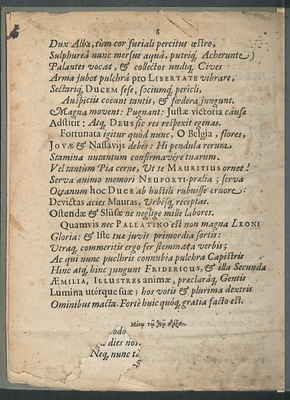 8
Dux Alba, tùm cor furiali percitus œstro,
Sulphureâ nunc mersus aquâ, putriq; Acherunte)
Palantes vocat, & collectos undiq; Cives
Arma jubet pulchrâ pro LIBERTATE vibrare,
Sectariq; DUCEM sese, sociumq; pericli.
Auspiciis coëunt tantis, & fœdera jungunt.
Magna movent: Pugnant: Justæ victoria causæ
Adstitit: Atq; DEUS sic res respexit egenas.
Fortunata igitur quòd nunc, O Belgia, flores,
JOVÆ & Nassavijs debes: Hi pendula rerum
Stamina nutantum confirmavêre tuarum.
Vel tantùm Pia cerne, Ut te MAURITIUS ornet!
Serva animo memori NEUPORTI-prælia; serva
Oceanum hoc DUCE ab hostili rubuisse cruore:
Devictas acies Mauras, Urbésq; receptas.
Ostendæ & Slûsæ ne neglige mille labores.
Quamvis nec PALLATINO est non magna LEONI
Gloria: & Iste tua juvit primordia sortis:
Utraq; commeritis ergo fer stemmata verbis;
Ac qui nunc pulchris connubia pulchra Capistris
Hinc atq; hinc jungunt FRIDERICUS, & illa Secunda
ÆMILIA, ILLUSTRES animæ, præclaráq; Gentis
Lumina utérque suæ; hos votis & plurima dextris
Ominibus macta. Fortè huic quóq; gratia facto est.
odo
dies no
Neq, nunc ta